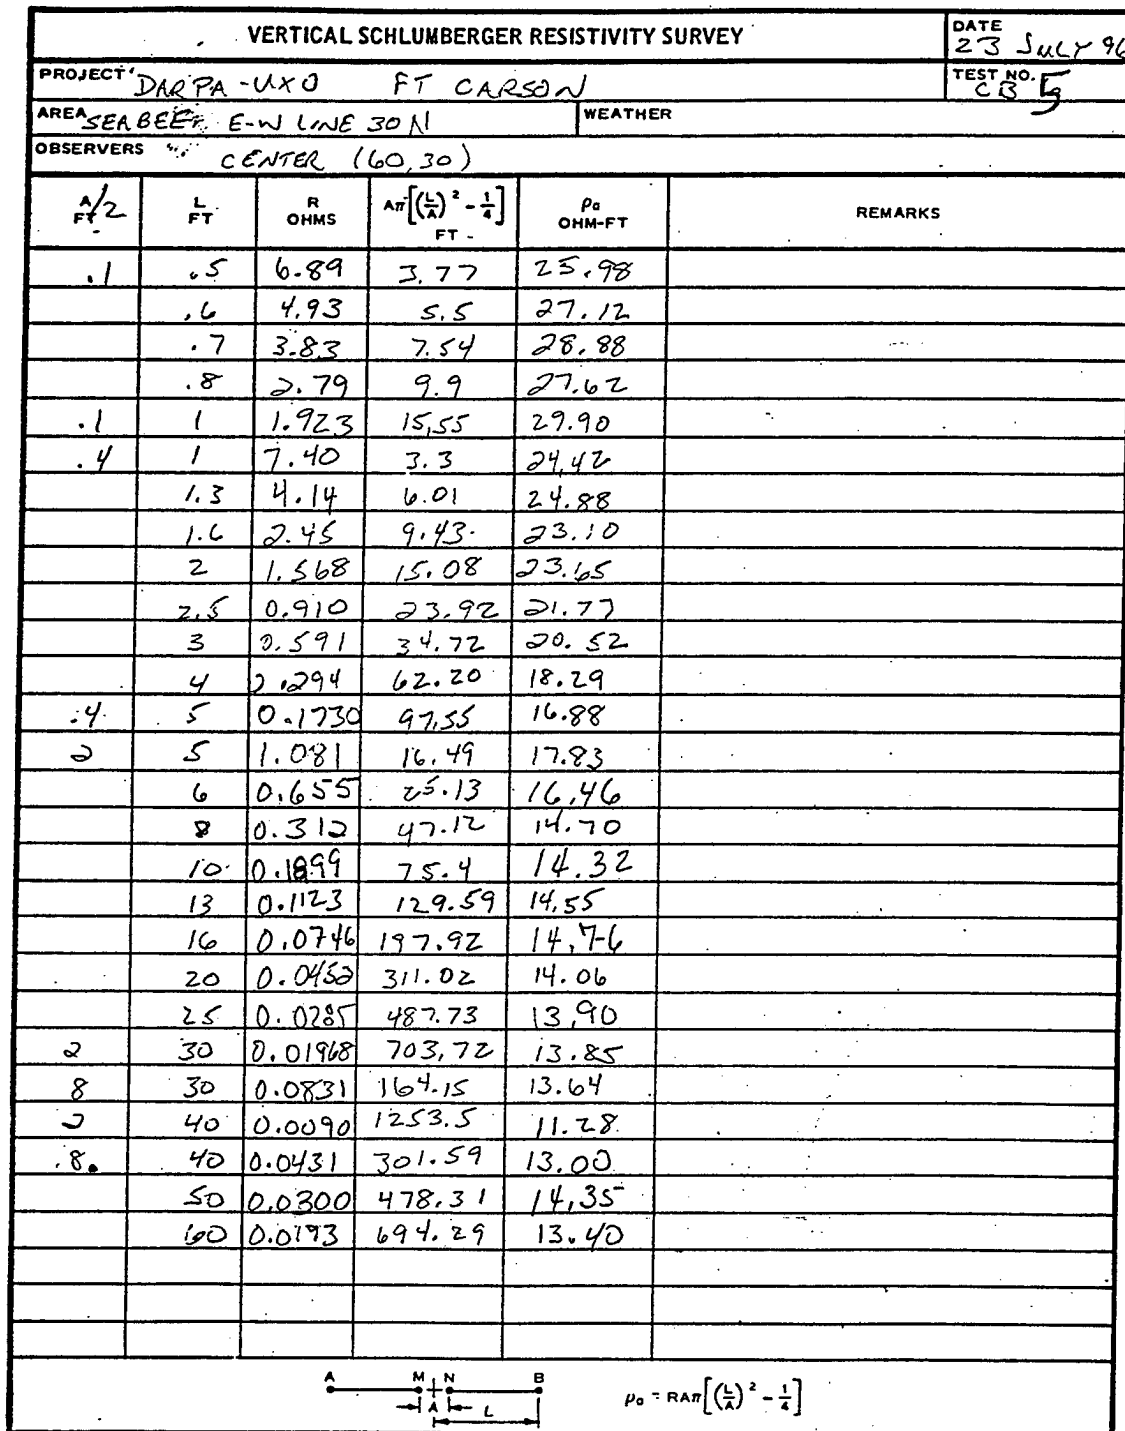 VERTICAL SCHLUMBERGER RESISTIVITY SURVEY
DATE
23 JULY 96
PROJECT DARPA-UXO FT CARSON
TEST NO.
CB 5
AREA SEABEE E-W LINE 30N
WEATHER
OBSERVERS CENTER (60,30)
A/2 FT L FT R OHMS Aπ[(L/A)² - 1/4] FT ρa OHM-FT REMARKS
.1 .5 6.89 3.77 25.98
.6 4.93 5.5 27.12
.7 3.83 7.54 28.88
.8 2.79 9.9 27.62
.1 1 1.923 15.55 29.90
.4 1 7.40 3.3 24.42
1.3 4.14 6.01 24.88
1.6 2.45 9.43 23.10
2 1.568 15.08 23.65
2.5 0.910 23.92 21.77
3 0.591 34.72 20.52
4 0.294 62.20 18.29
.4 5 0.1730 97.55 16.88
2 5 1.081 16.49 17.83
6 0.655 25.13 16.46
8 0.312 47.12 14.70
10 0.1899 75.4 14.32
13 0.1123 129.59 14.55
16 0.0746 197.92 14.76
20 0.0452 311.02 14.06
25 0.0285 487.73 13.90
2 30 0.01968 703.72 13.85
8 30 0.0831 164.15 13.64
2 40 0.0090 1253.5 11.28
8 40 0.0431 301.59 13.00
50 0.0300 478.31 14.35
60 0.0193 694.29 13.40
A M N B
A L
ρa = RAπ[(L/A)² - 1/4]